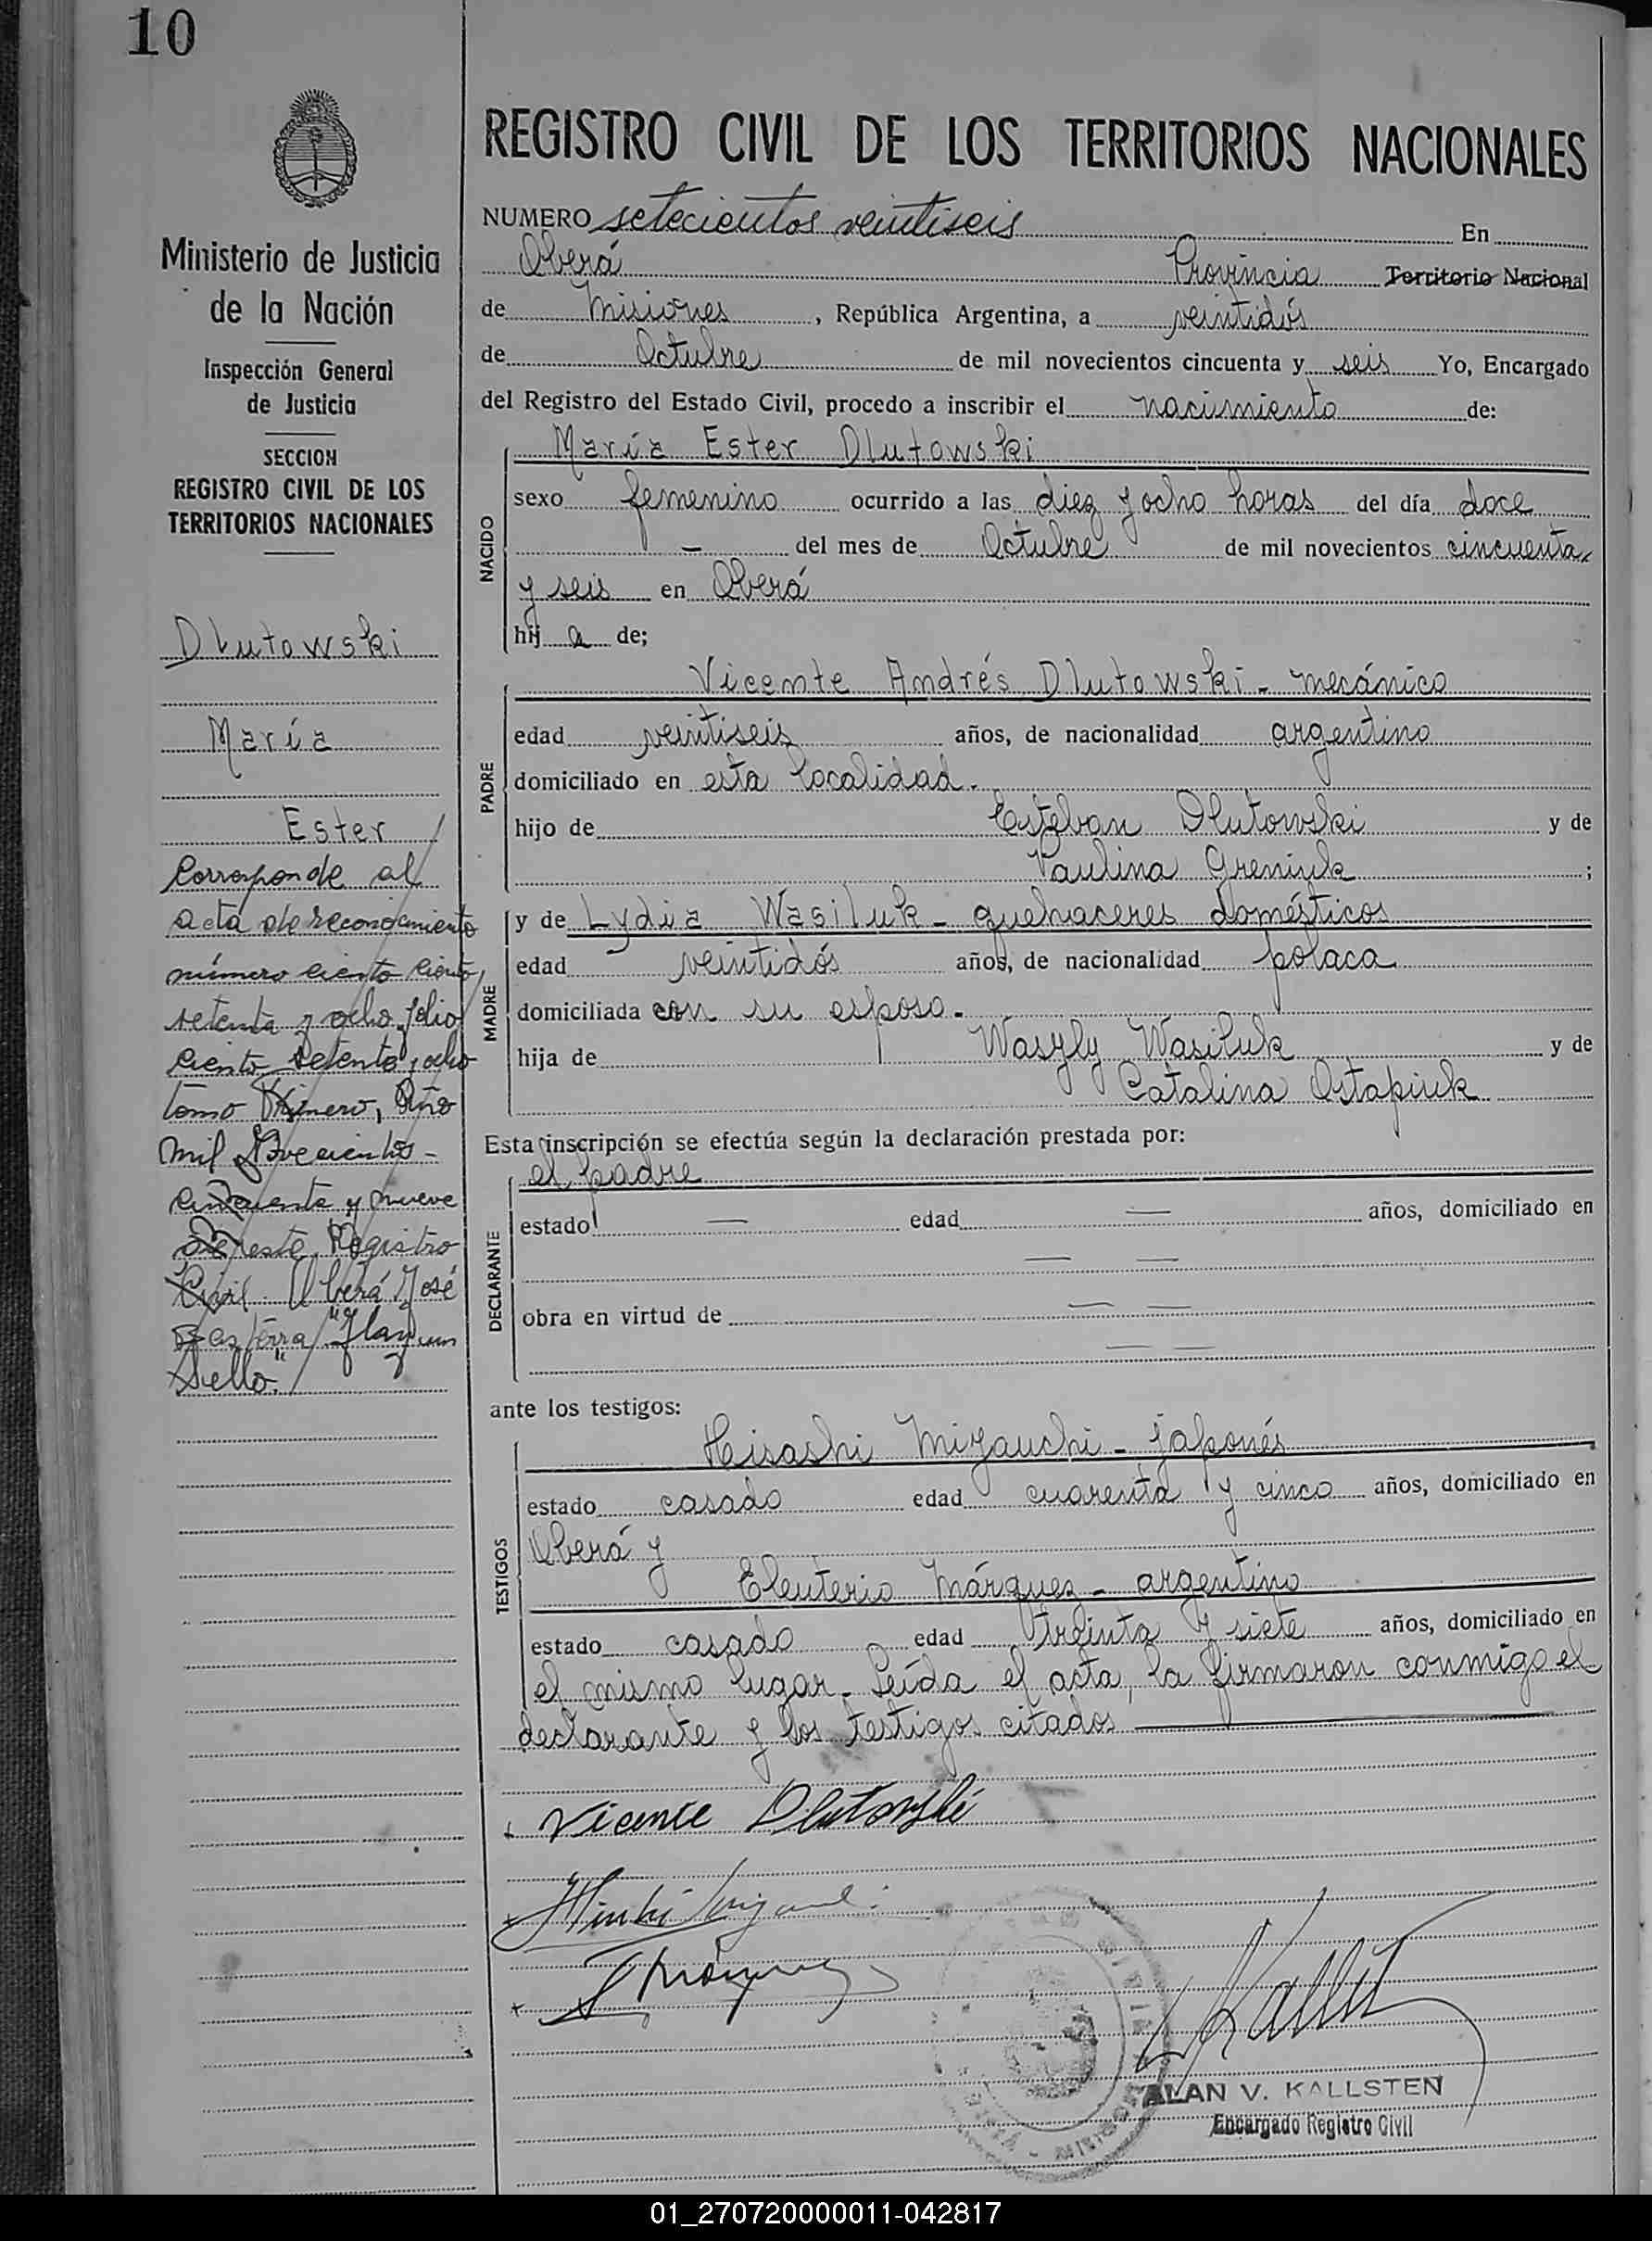 10
REGISTRO CIVIL DE LOS TERRITORIOS NACIONALES
Ministerio de Justicia
de la Nación
Inspección General
de Justicia
SECCION
REGISTRO CIVIL DE LOS
TERRITORIOS NACIONALES
Dlutowski
María
Ester
Corresponde al
acta de reconocimiento
número ciento ciento
setenta y ocho folio
ciento setenta y ocho
tomo Primero, Año
mil Novecientos -
cincuenta y nueve
de este Registro
Civil. Oberá José
"Hay un
Sello."
NUMERO setecientos veintiseis En
Oberá Provincia Territorio Nacional
de Misiones, República Argentina, a veintidós
de Octubre de mil novecientos cincuenta y seis Yo, Encargado
del Registro del Estado Civil, procedo a inscribir el nacimiento de:
NACIDO
María Ester Dlutowski
sexo femenino ocurrido a las diez y ocho horas del día doce
— del mes de Octubre de mil novecientos cincuenta
y seis en Oberá
hij a de;
PADRE
Vicente Andrés Dlutowski - mecánico
edad veintiseis años, de nacionalidad argentino
domiciliado en esta localidad.
hijo de Esteban Dlutowski y de
Paulina Greniuk ;
MADRE
y de Lydia Wasiluk - quehaceres domésticos
edad veintidós años, de nacionalidad polaca
domiciliada con su esposo.
hija de Wasyly Wasiluk y de
Catalina Ostapiuk
Esta inscripción se efectúa según la declaración prestada por:
DECLARANTE
el padre
estado — edad — años, domiciliado en
— —
obra en virtud de — —
— —
ante los testigos:
TESTIGOS
Hisashi Miyauchi - japonés
estado casado edad cuarenta y cinco años, domiciliado en
Oberá y
Eleuterio Márquez - argentino
estado casado edad treinta y siete años, domiciliado en
el mismo lugar. Leída el acta, la firmaron conmigo el
declarante y los testigos citados
Vicente Dlutowski
ALAN V. KALLSTEN
Encargado Registro Civil
01_270720000011-042817